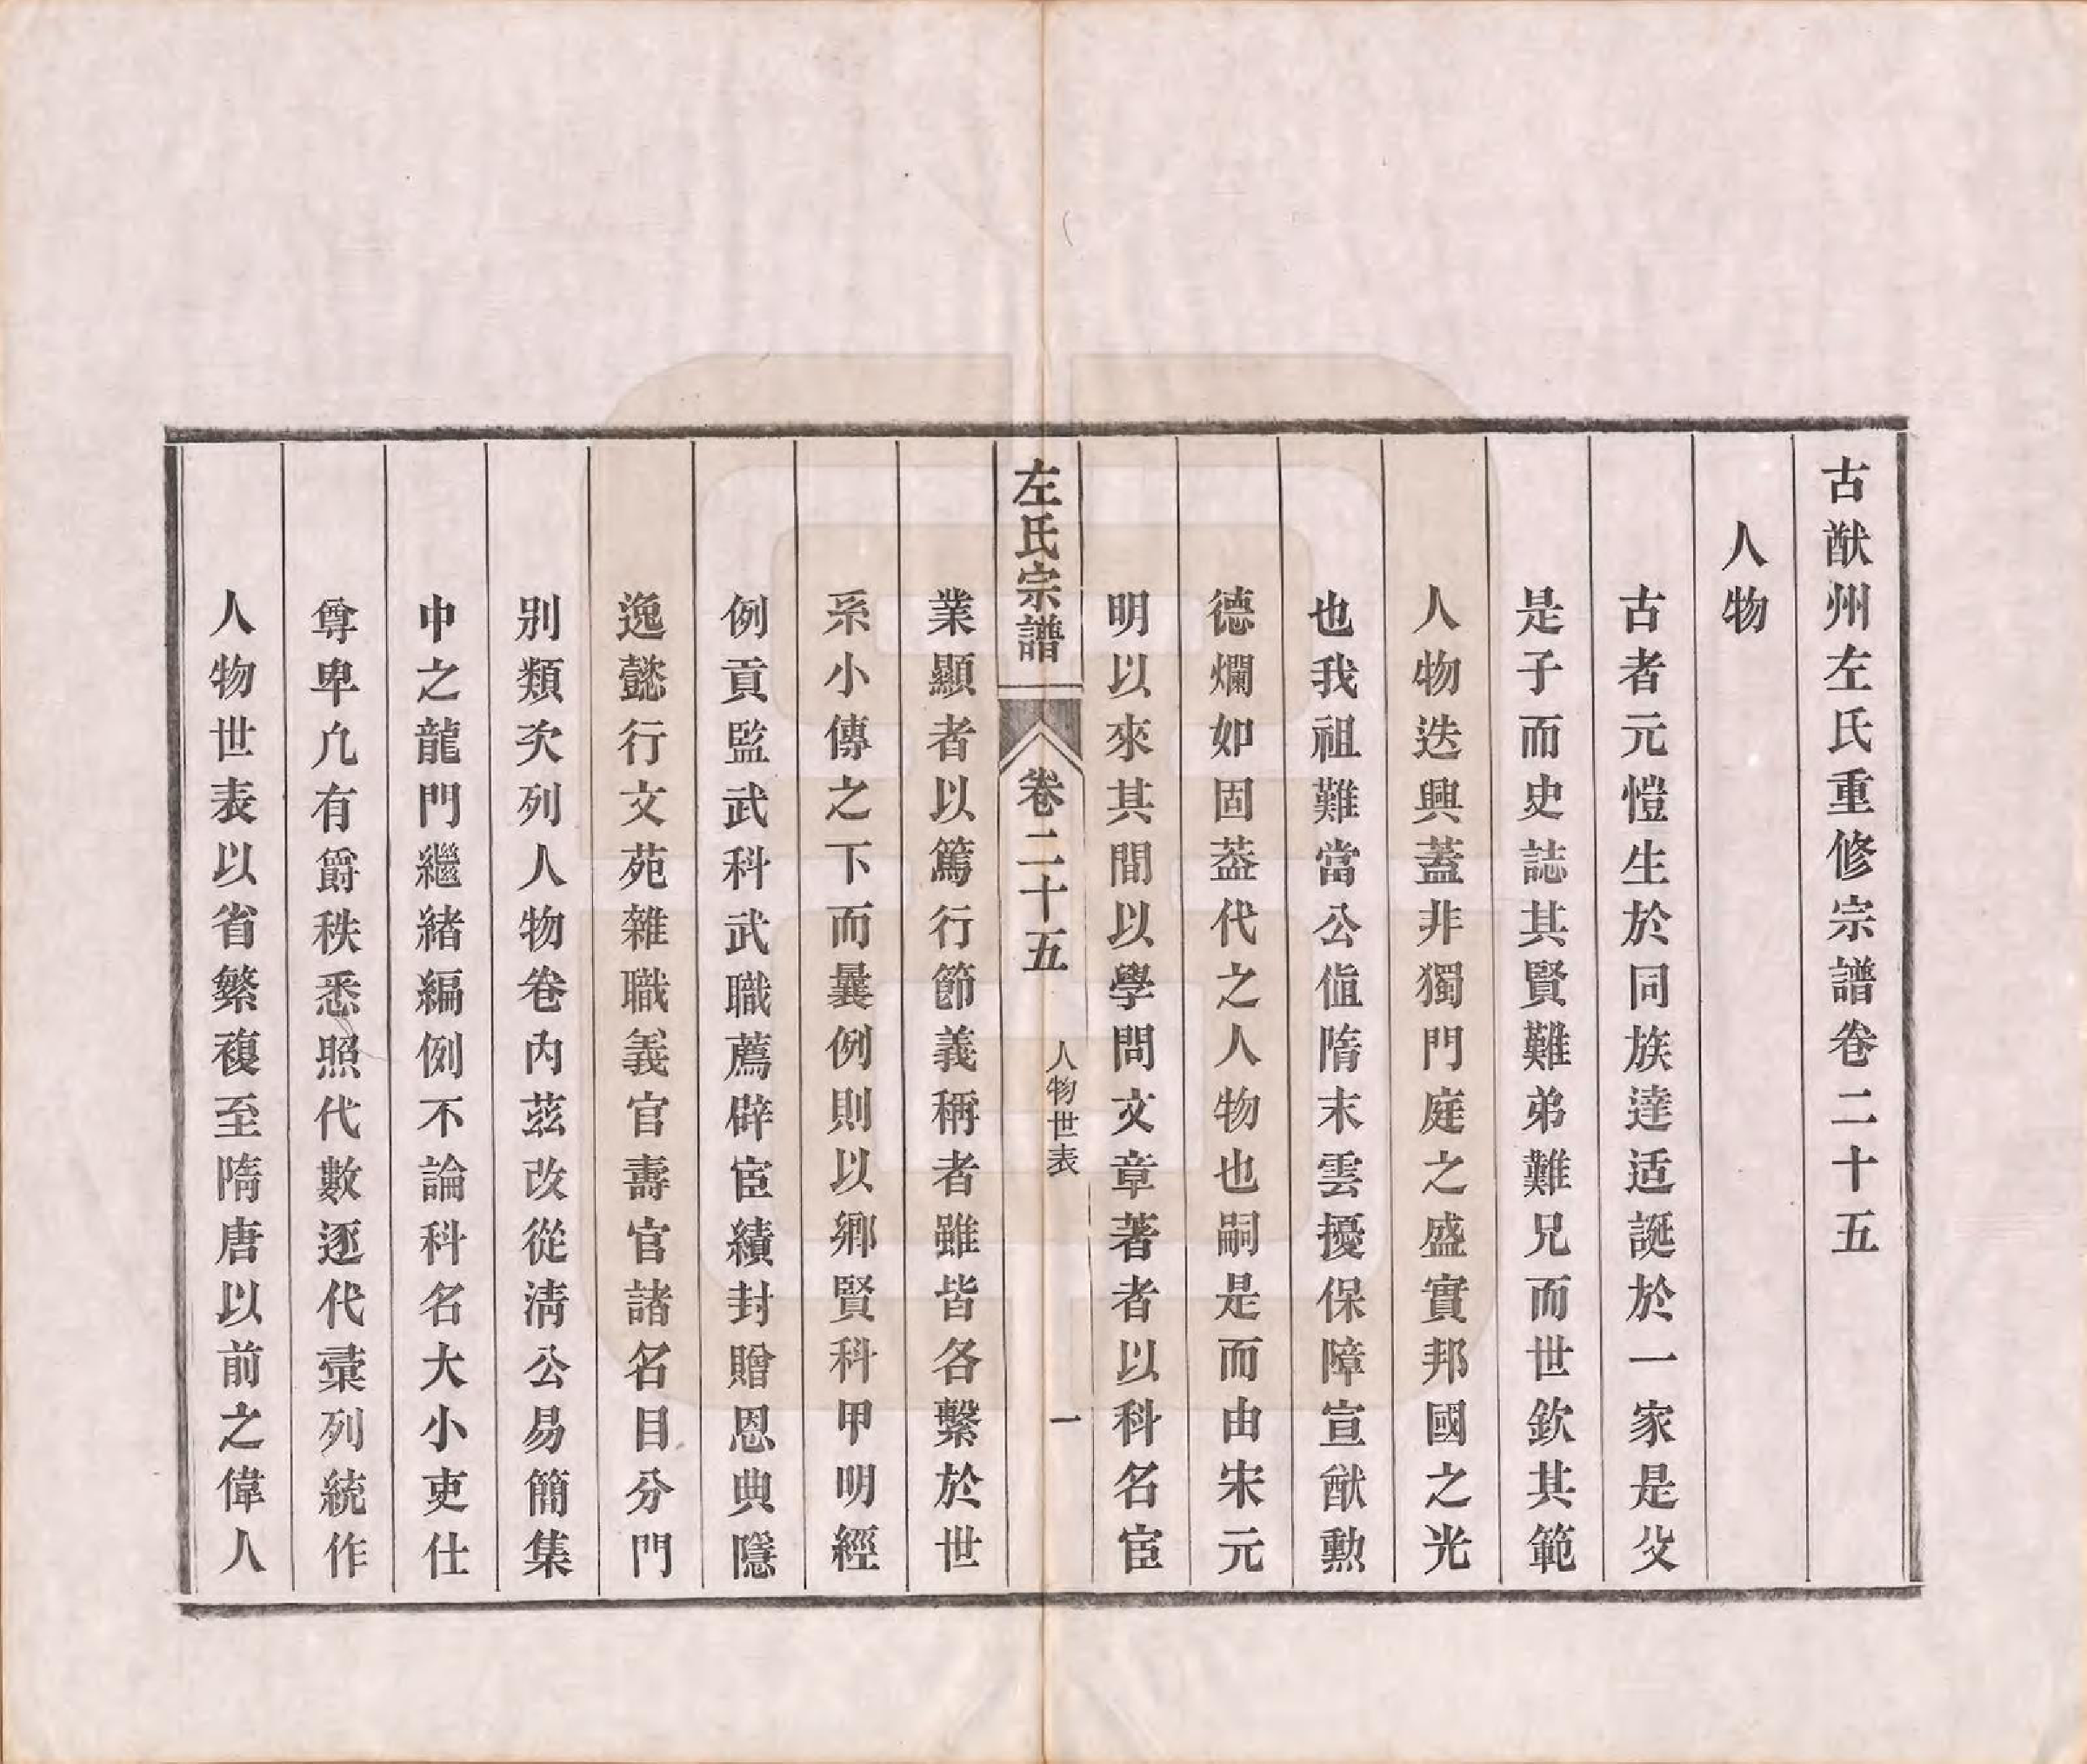 古猷州左氏重修宗譜卷二十五
人物
古者元愷生於同族達适誕於一家是父
是子而史誌其賢難弟難兄而世欽其範
人物迭興蓋非獨門庭之盛實邦國之光
也我祖難當公值隋末雲擾保障宣猷勲
德爛如固葢代之人物也嗣是而由宋元
明以來其間以學問文章著者以科名宦
左氏宗譜 卷二十五 人物世表 一
業顯者以篤行節義稱者雖皆各繫於世
系小傳之下而曩例則以鄉賢科甲明經
例貢監武科武職薦辟宦績封贈恩典隱
逸懿行文苑雜職義官壽官諸名目分門
別類次列人物卷內茲改從淸公易簡集
中之龍門繼緒編例不論科名大小吏仕
尊卑凢有爵秩悉照代數逐代彙列統作
人物世表以省繁複至隋唐以前之偉人